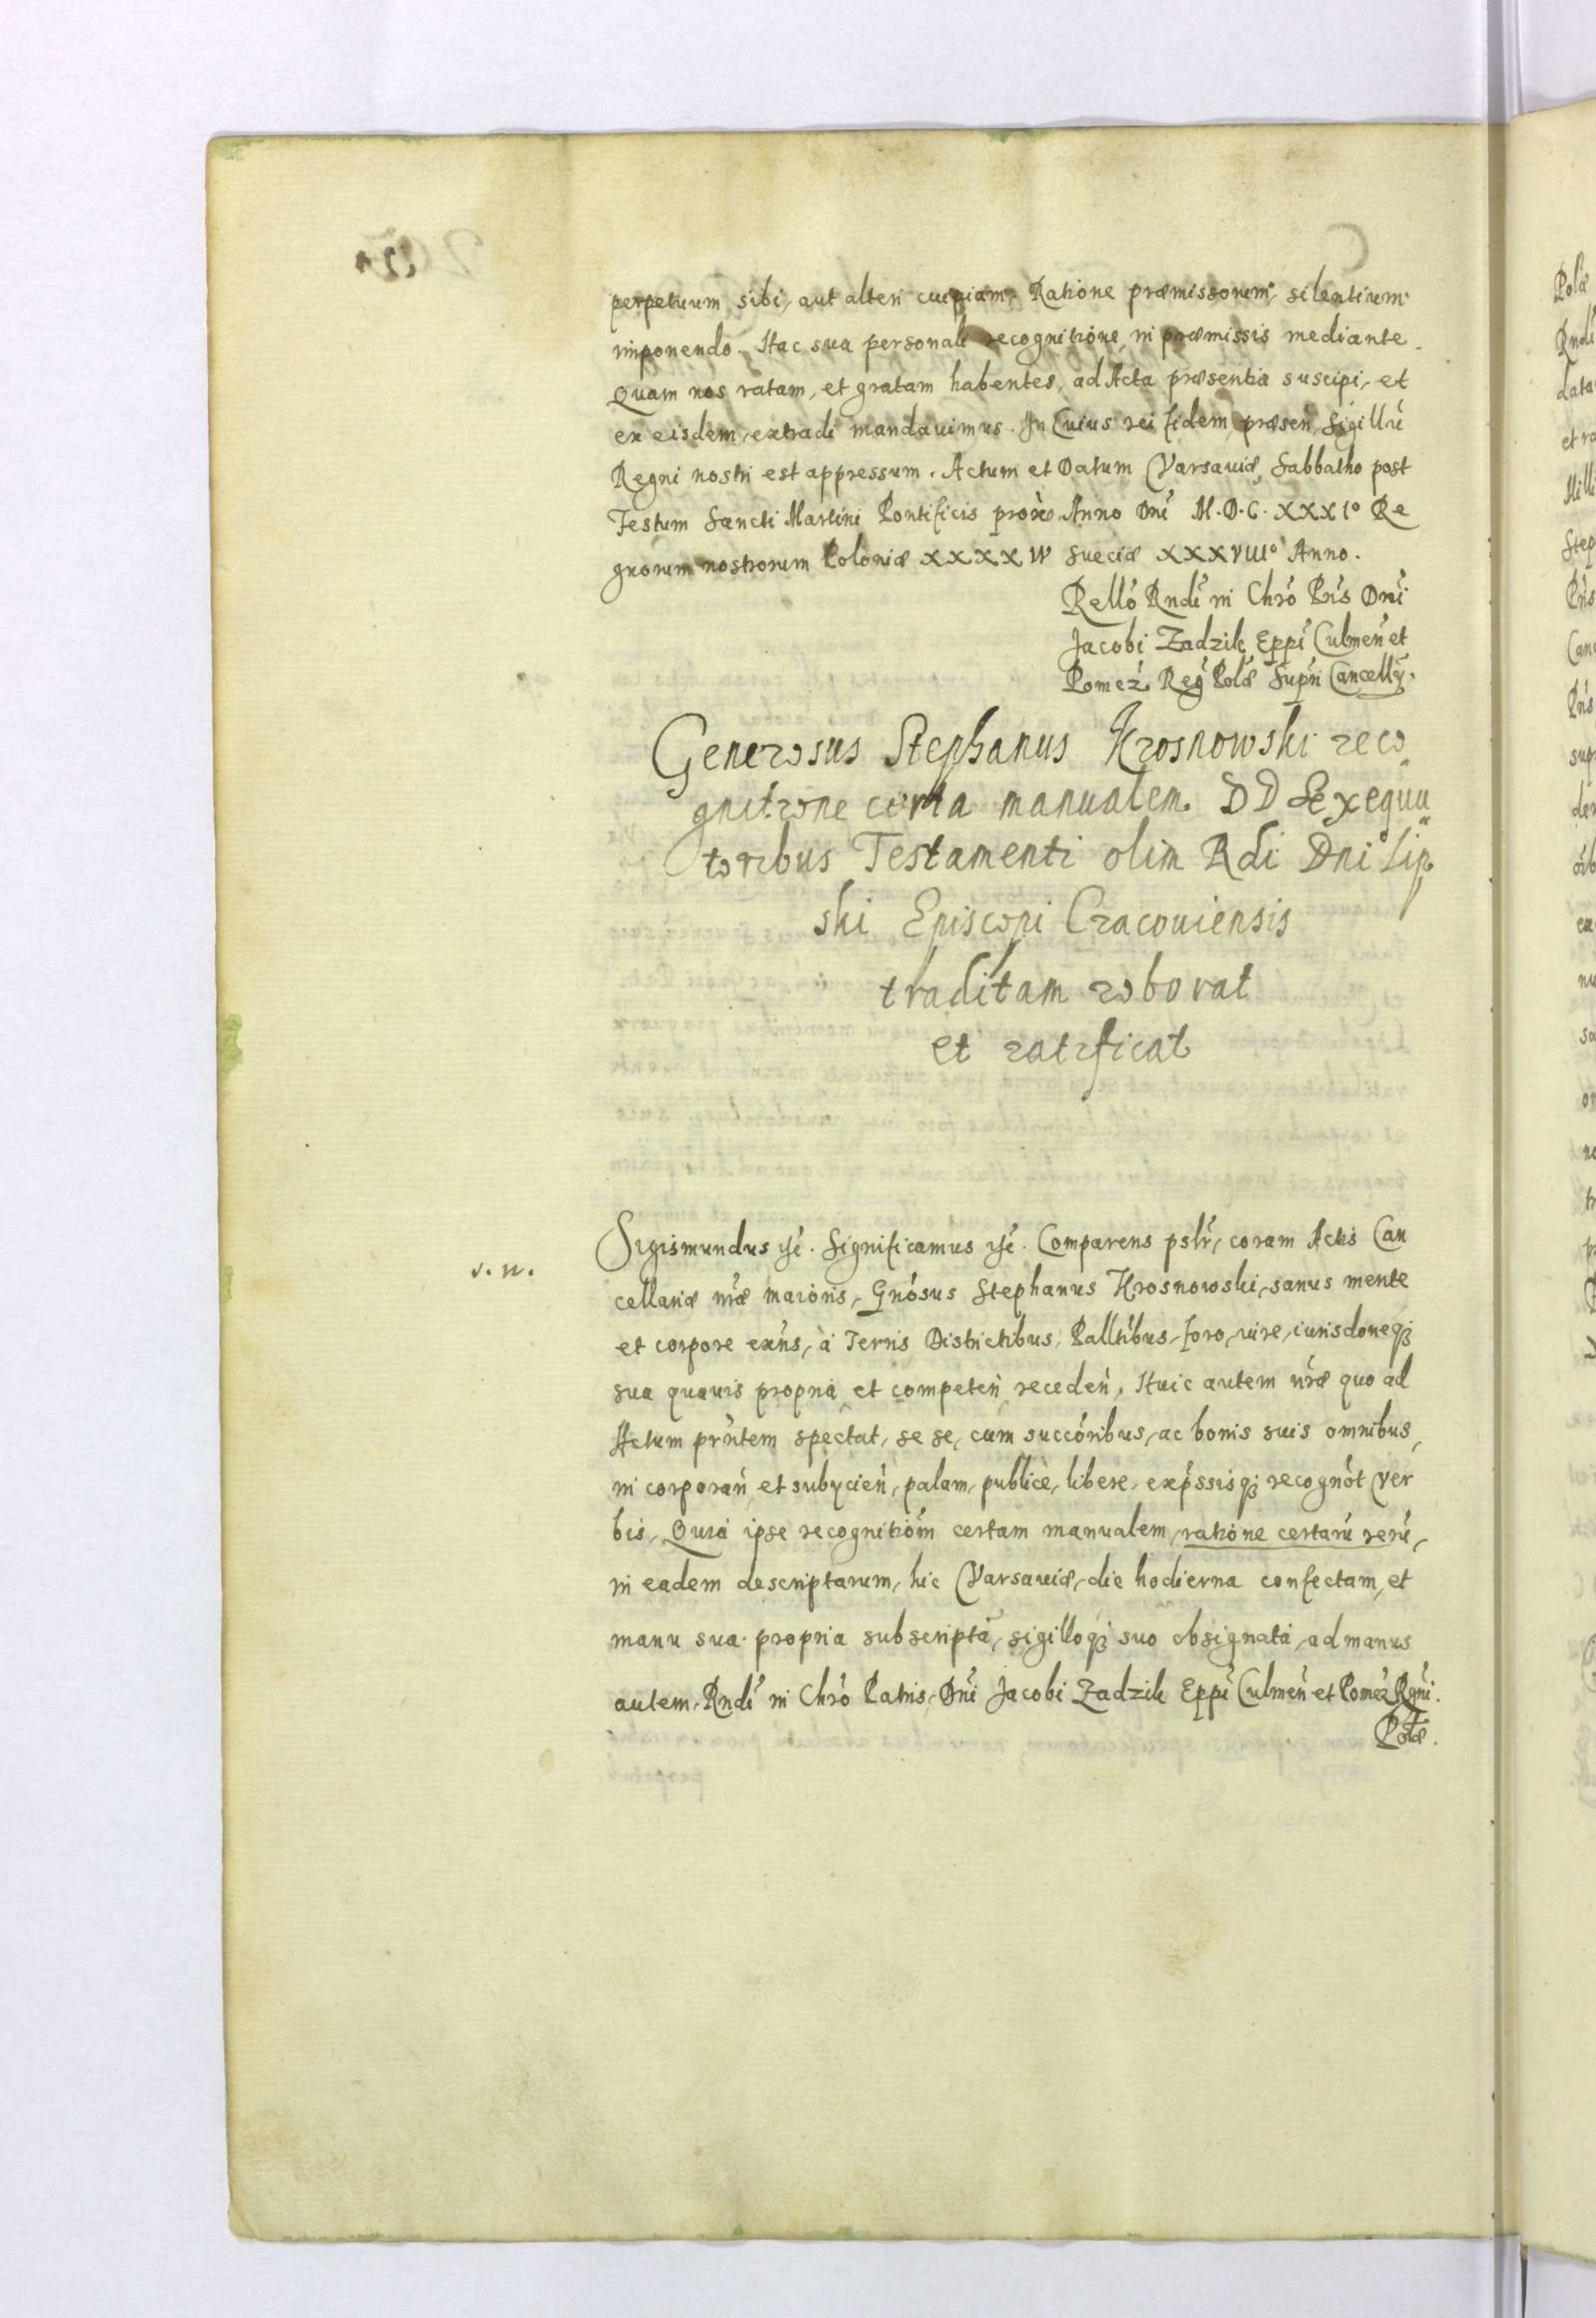 perpetuum sibi, aut alteri cuipiam, Ratione præmissorum, silentium
imponendo. Hac sua personali recognitione, in præmissis mediante.
Quam nos ratam, et gratam habentes, ad Acta præsentia suscipi, et
ex eisdem, extradi mandauimus. In Cuius rei fidem, præsen̄ Sigillū
Regni nostri est appressum. Actum et Datum Varsauiæ, Sabbatho post
Festum Sancti Martini Pontificis proxē Anno Dnī M.D.C.XXXIº Re
gnorum nostrorum Poloniæ XXXXIV Sueciæ XXXVIIIº Anno.
Rello Rndi in Chro Pris Dnī
Jacobi Zadzik Eppi Culmen̄ et
Pomez. Reg Polæ Supri Cancellȳ.
Generosus Stephanus Krosnowski reco
gnitione certa manualem DD Exequu
toribus Testamenti olim Rdi Dni Lip
ski Episcopi Cracouiensis
traditam roborat
et ratificat
Sigismundus etc. Significamus etc. Comparens pslr, coram Actis Can
s. n.
cellariæ nræ maioris, Gnosus Stephanus Krosnowski, sanus mente
et corpore exns, à Terris Districtibus, Palltibus, foro, iure, iurisdoneq;
sua quauis propria et competen̄ receden̄, Huic autem nræ quo ad
Actum prntem spectat, se se, cum succoribus, ac bonis suis omnibus,
in corporan̄ et subycien̄, palam, publicè, libere, expssisq; recognot Ver
bis, Quia ipse recogniti̅om certam manualem, ratione certarū rerū,
in eadem descriptarum, hic Varsauiæ, die hodierna confectam, et
manu sua propria subscriptā, sigilloq; suo obsignatā, ad manus
autem, Rndi in Chro Patris, Dni Jacobi Zadzik Eppi Culmen̄ et Pomez Rgni.
Polæ.